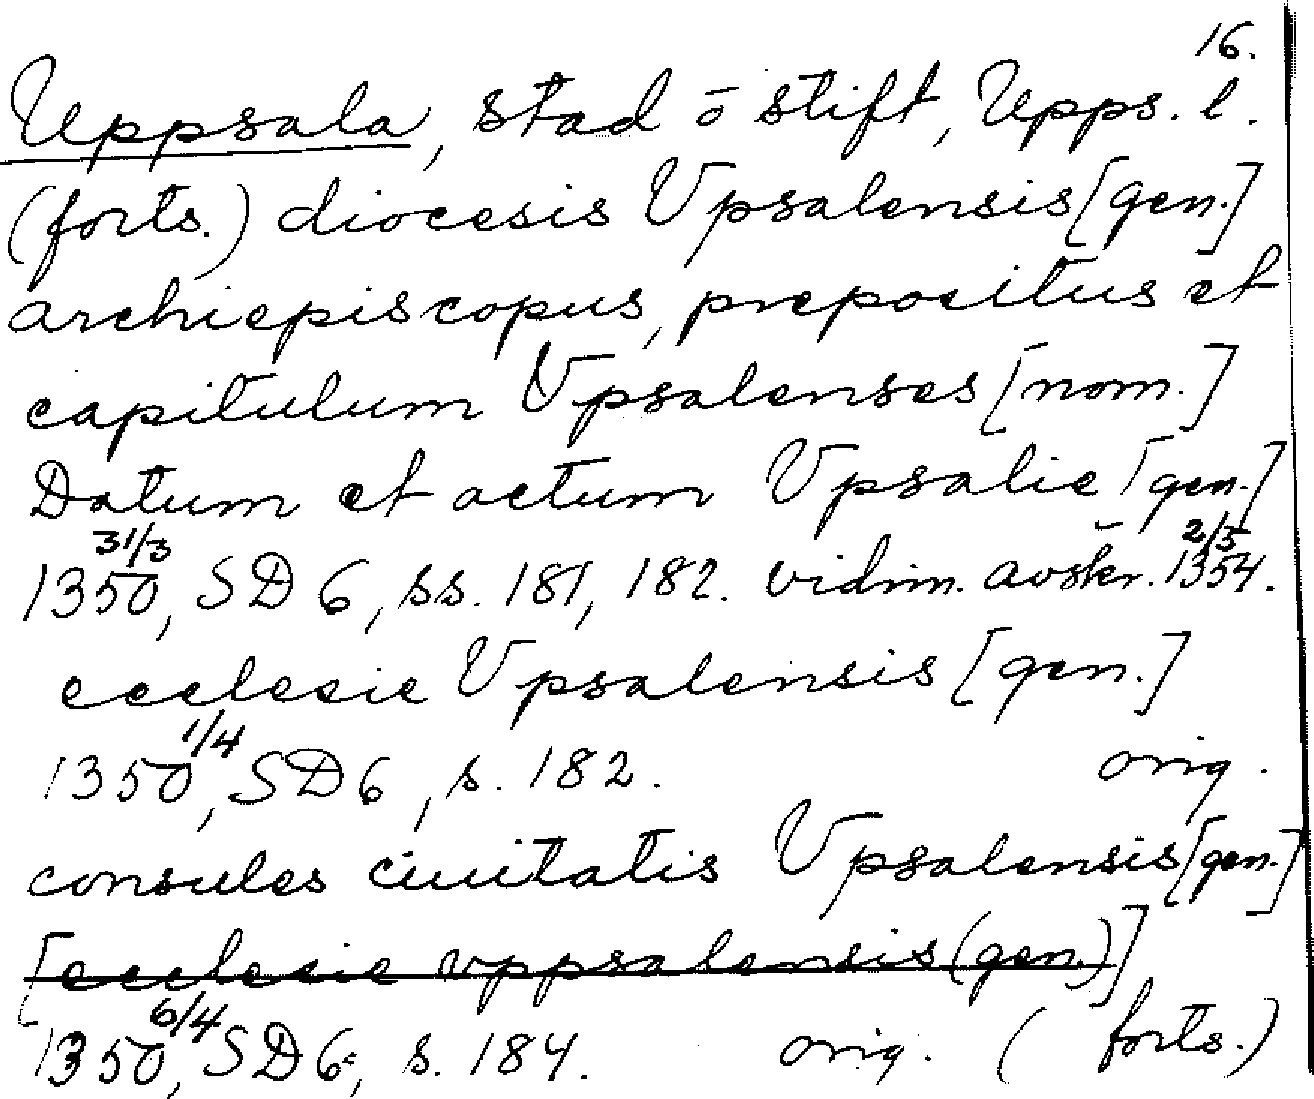 16.
Uppsala, stad o stift, Upps. l.
(forts.) diocesis Vpsalensis [gen.]
archiepiscopus, prepositus et
capitulum Vpsalenses [nom.]
Datum et actum Vpsalie [gen.]
31/3 2/5
1350, SD 6, ss. 181, 182. vidim. avskr. 1354.
ecclesie Vpsalensis [gen.]
1/4
1350, SD 6, s. 182. orig.
consules ciuitatis Vpsalensis [gen.]
[ecclesie vppsalensis (gen.)]
6/4
1350, SD 6, s. 184. orig. (forts.)